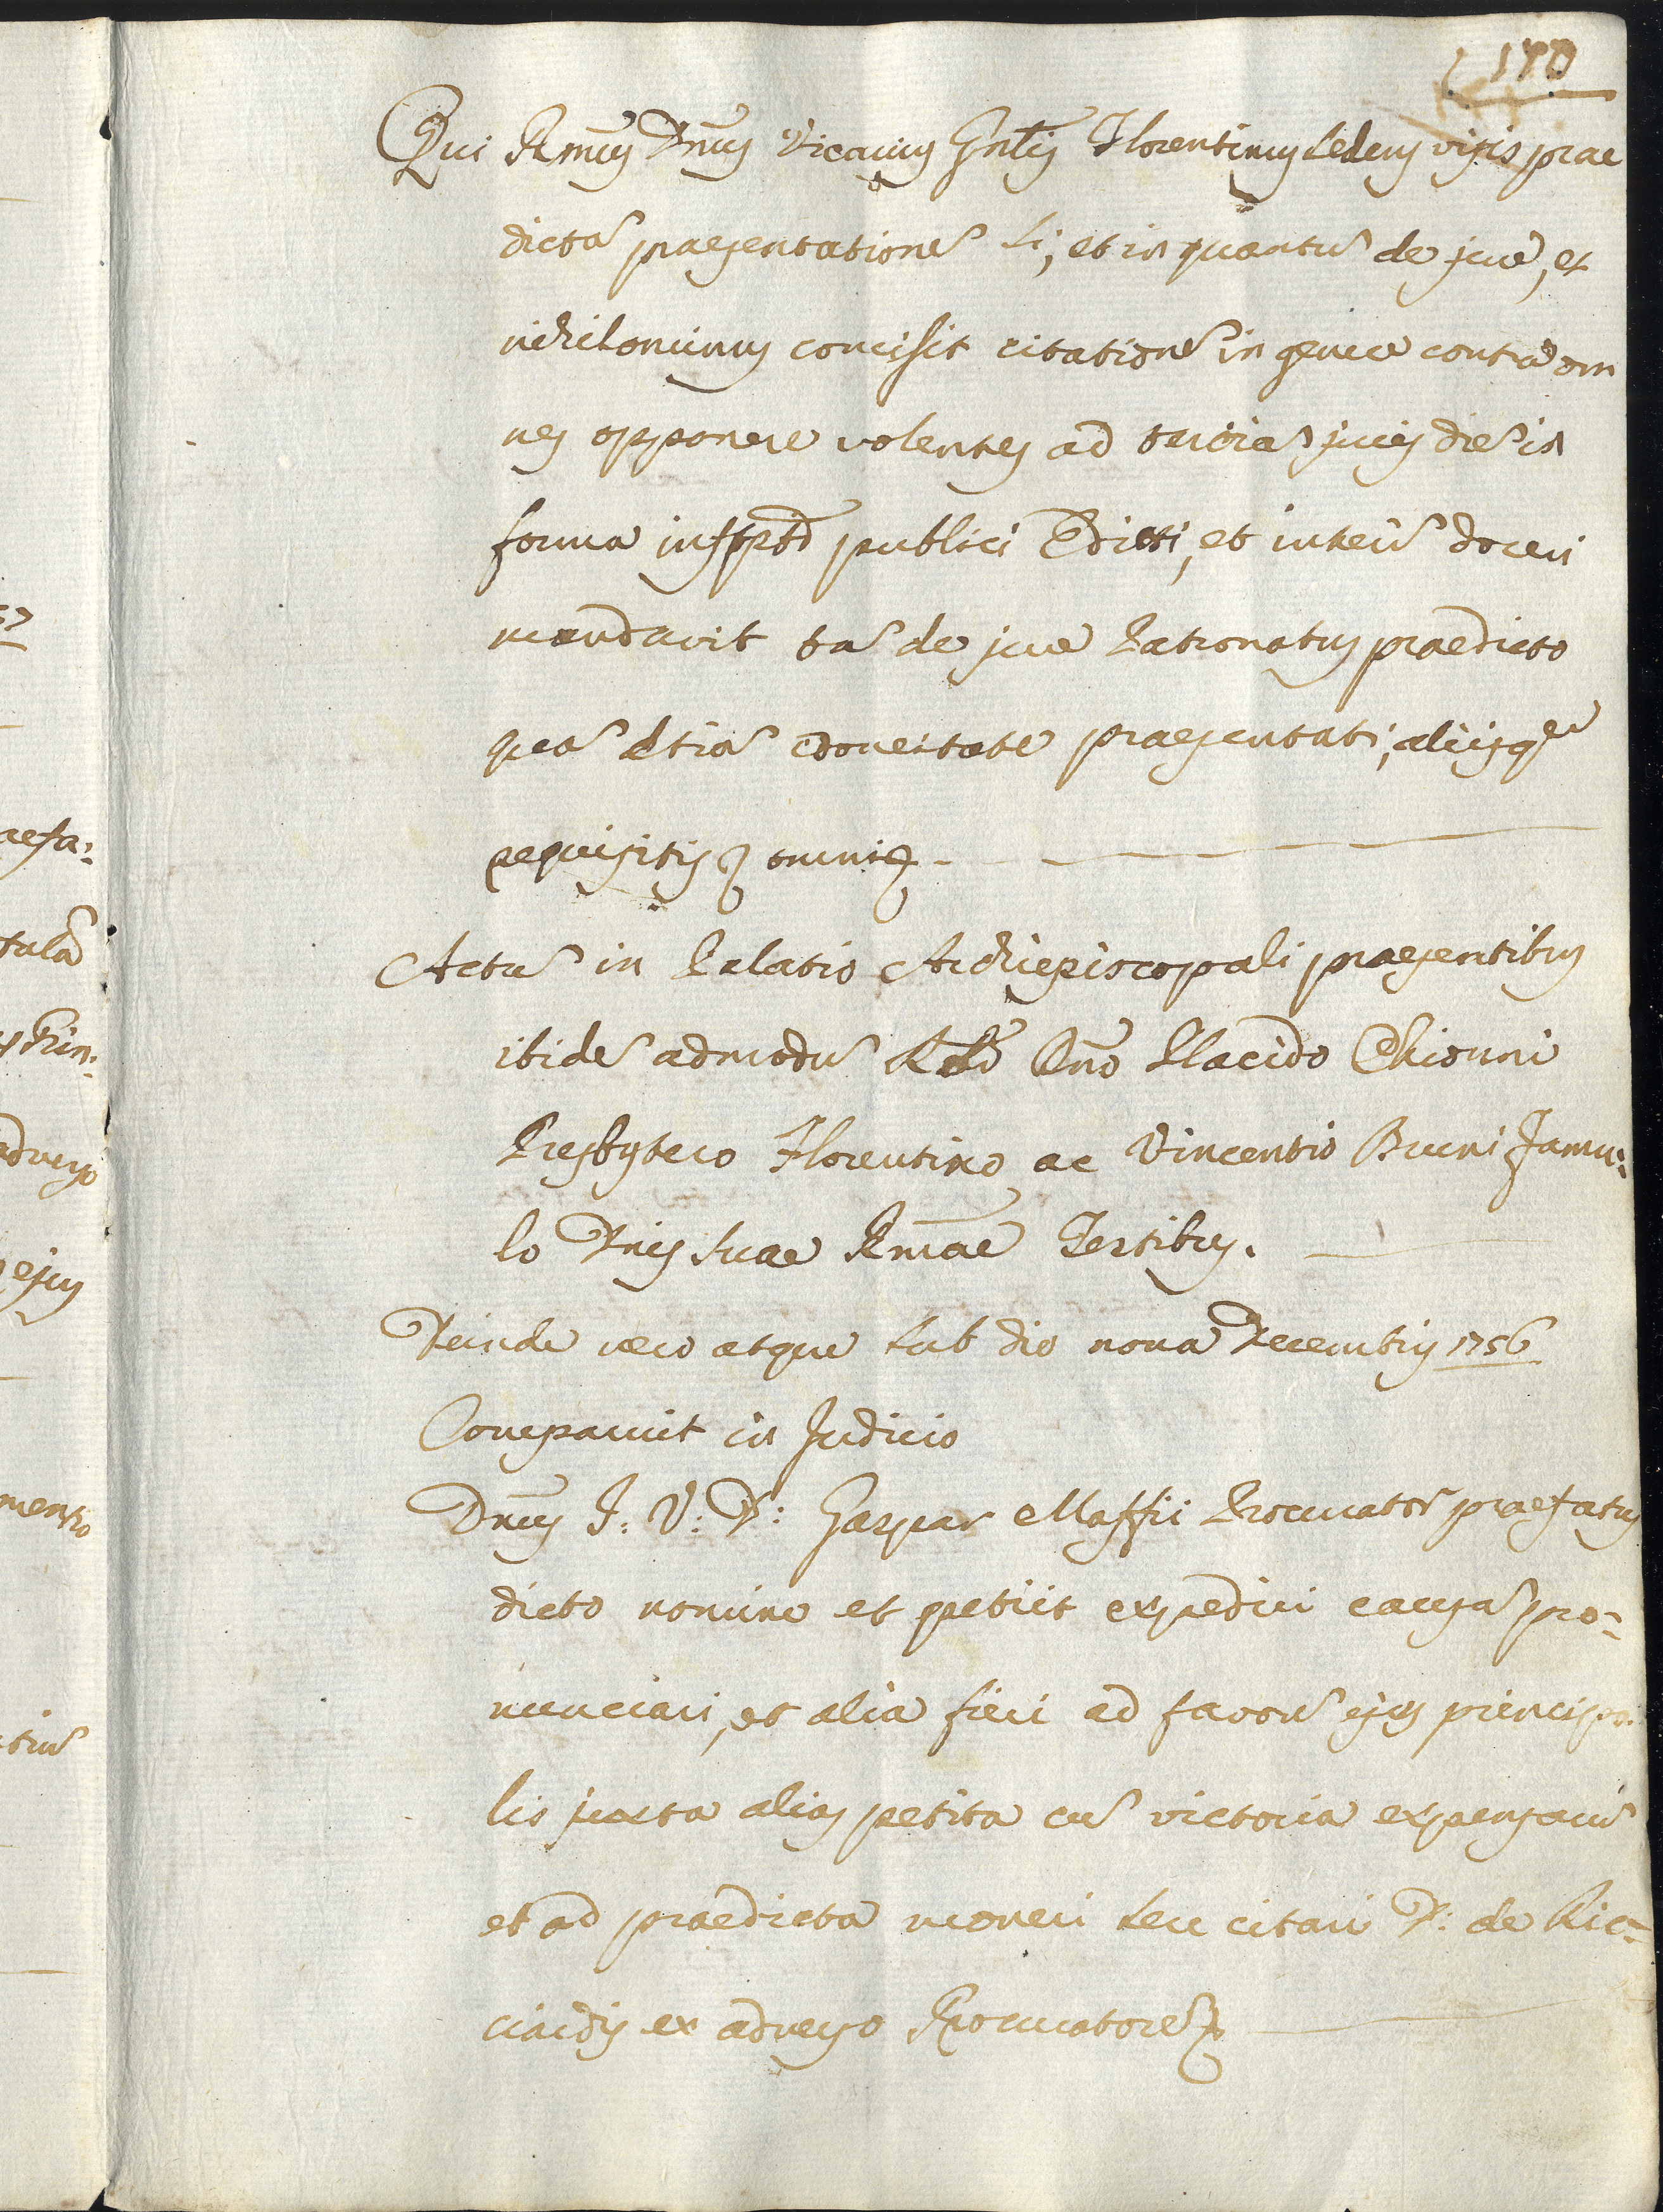 170
Qui Rmus Dnus Vicarius Gnlis Florentinus sedens visis prae
dictã praesentationẽ si, et in quantũ de jure, et
nihilominus concissit citationẽ in genere contra om
nes opponere volentes ad terciã juris diẽ in
forma publici Edicti, et interĩ doceri
mandavit tã de jure Patronatus praedicto
quã etiã edoneitate praesentati, aliisque
requisitis omnibus
Actũ in Palatio Archiepiscopali praesentibus
ibidẽ admodũ Rdo Dno Placido Chionni
Presbytero Florentino ac Vincentio Bruni Famu:
lo Dnis suae Rmae Testibus.
Deinde vero atque sub die nona Decembris 1756
Comparuit in Judicio
Dnus J: V: D: Gaspar Maffii Procurator praefatus
dicto nomine et petiit expediri causã pro:
nunciari, et alia fieri ad favorẽ ejus principa
lis juxta alias petita cũ victoria expensarũ
et ad praedicta moneri seu citari D: de Ric:
ciardis ex adverso Procuratorẽ
57
aefa:
tulã
adverso
ejus
mento